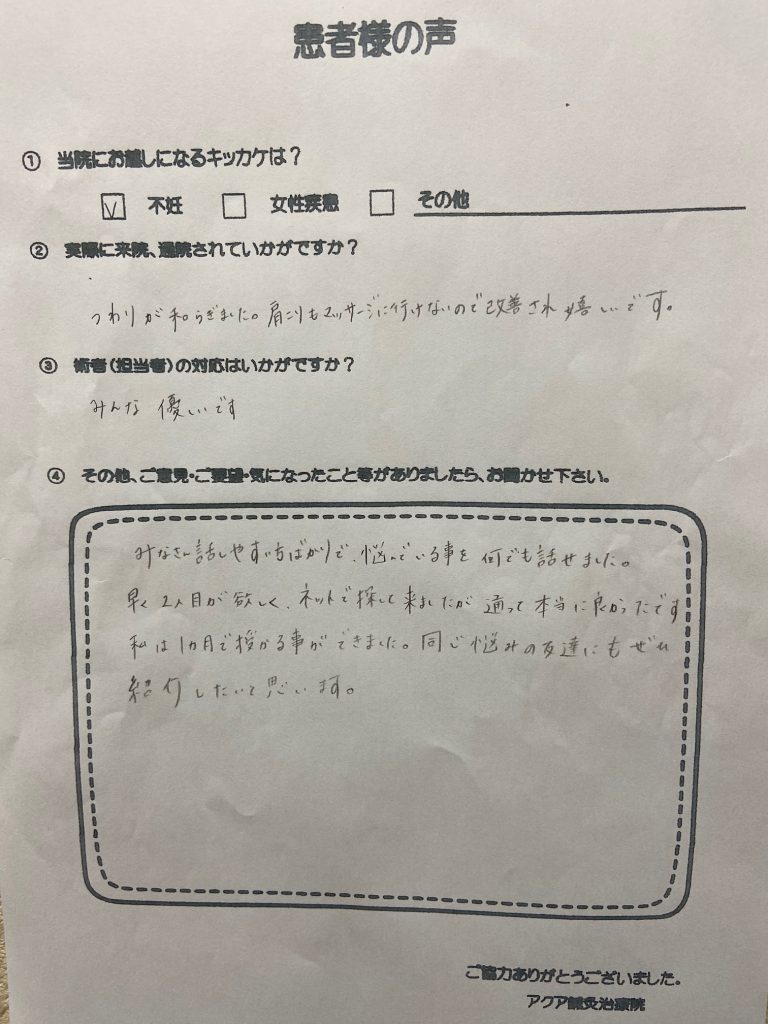 患者様の声
① 当院にお越しになるキッカケは？
不妊 女性疾患 その他
② 実際に来院、通院されていかがですか？
つわりが和らぎました。肩こりもマッサージに行けないので改善され嬉しいです。
③ 術者（担当者）の対応はいかがですか？
みんな 優しいです
④ その他、ご意見・ご要望・気になったこと等がありましたら、お聞かせ下さい。
みなさん話しやすい方ばかりで、悩んでいる事を何でも話せました。
早く2人目が欲しく、ネットで探して来ましたが通って本当に良かったです
私は1カ月で授かる事ができました。同じ悩みの友達にもぜひ
紹介したいと思います。
ご協力ありがとうございました。
アクア鍼灸治療院